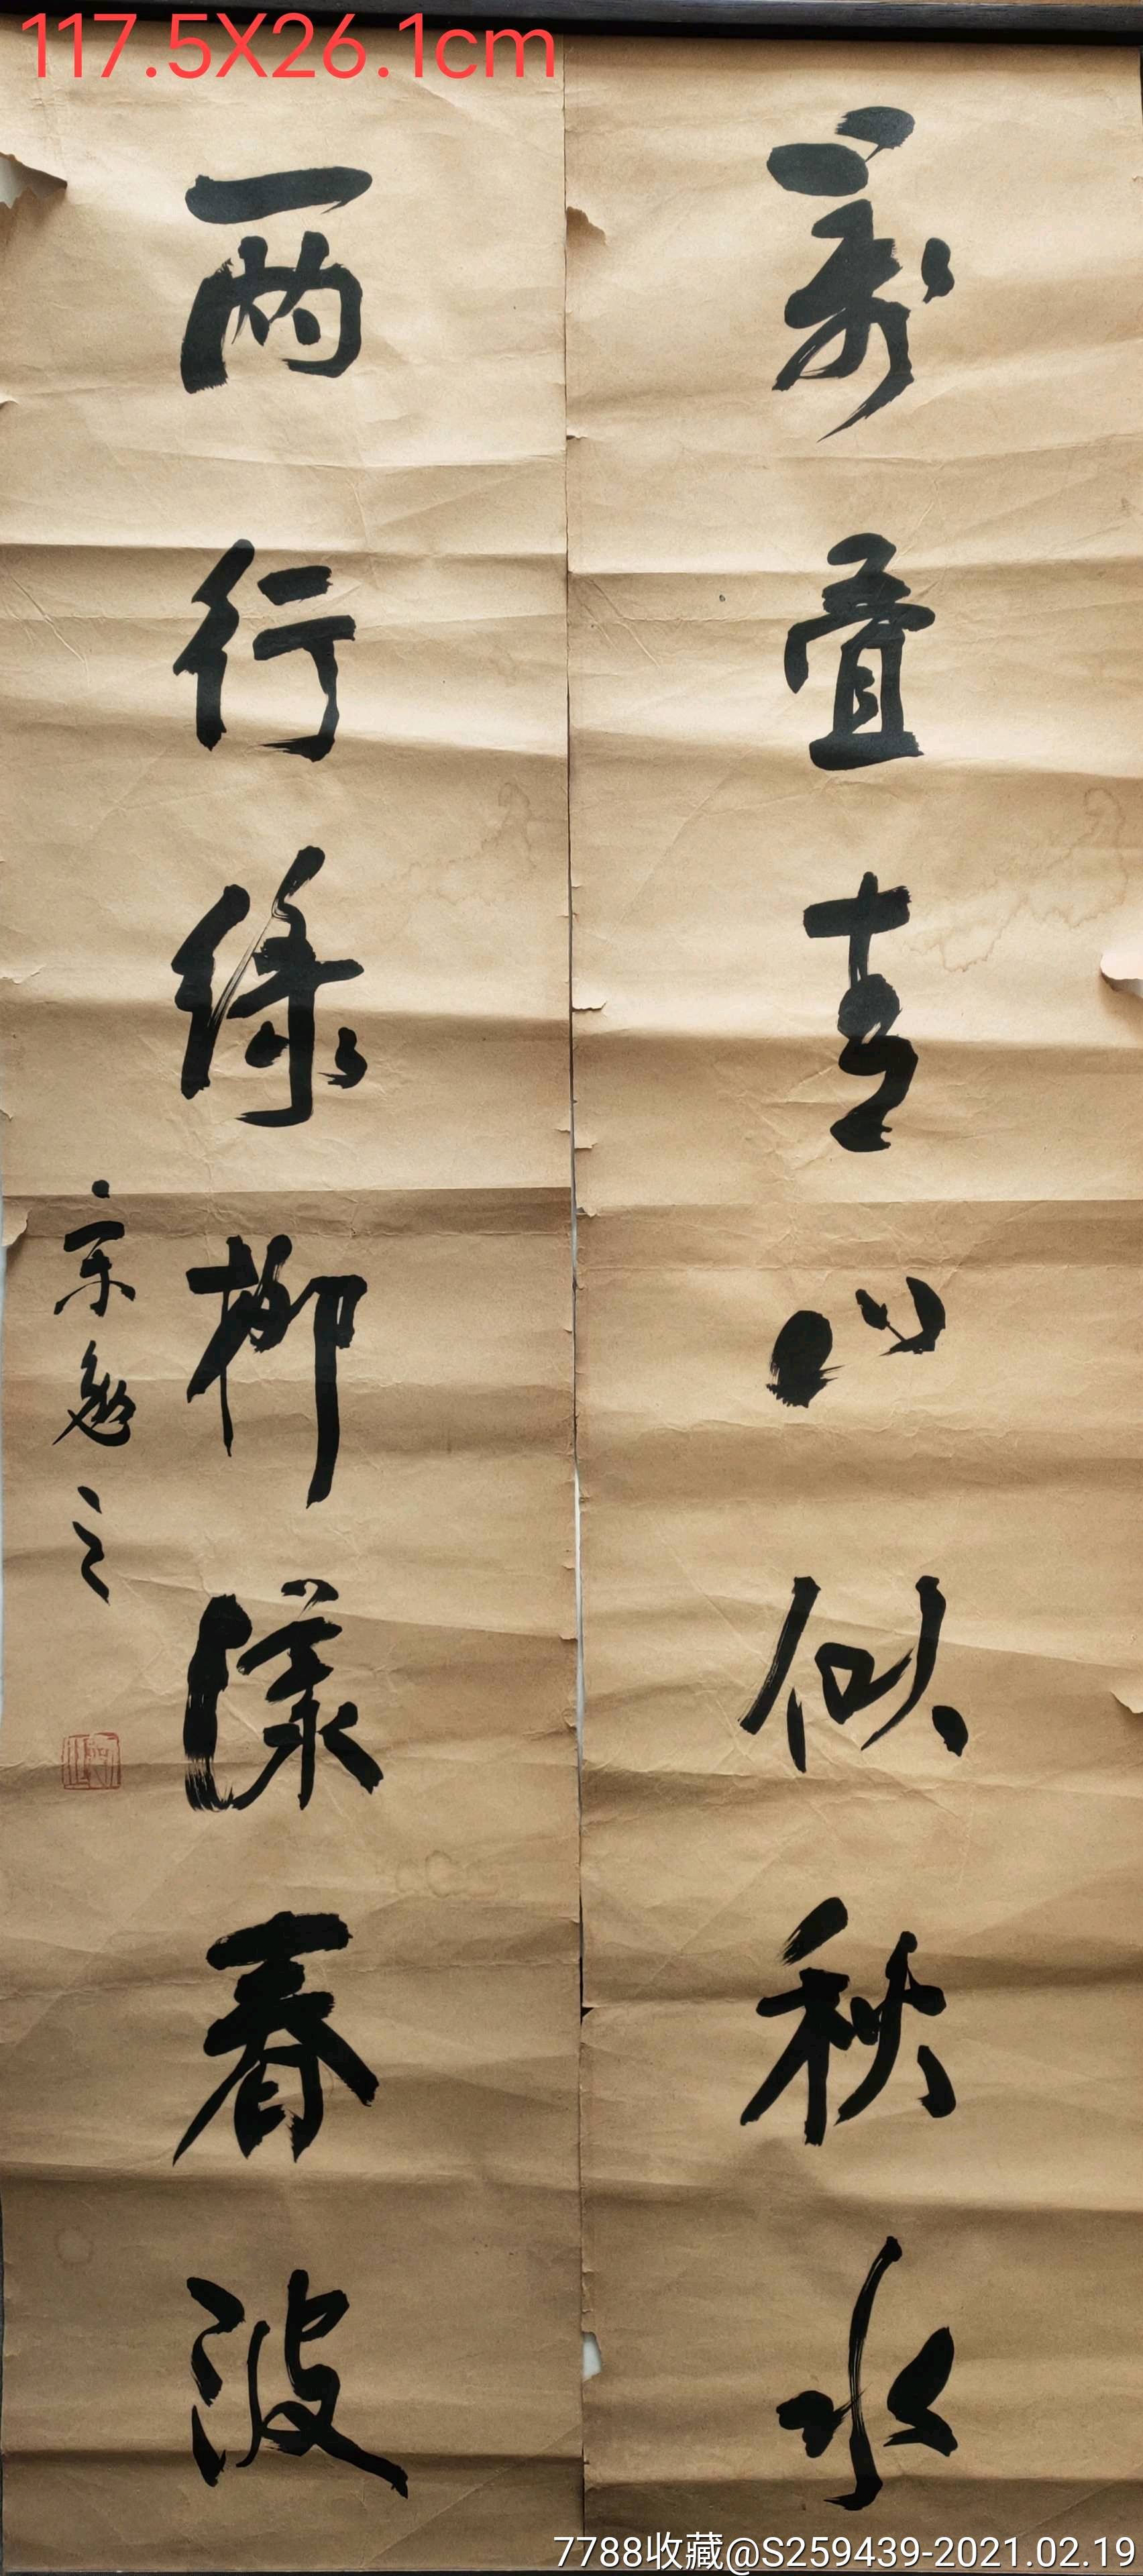 117.5X26.1cm
万叠青山似秋水
两行绿柳漾春波
宗勉之
7788收藏@S259439-2021.02.19